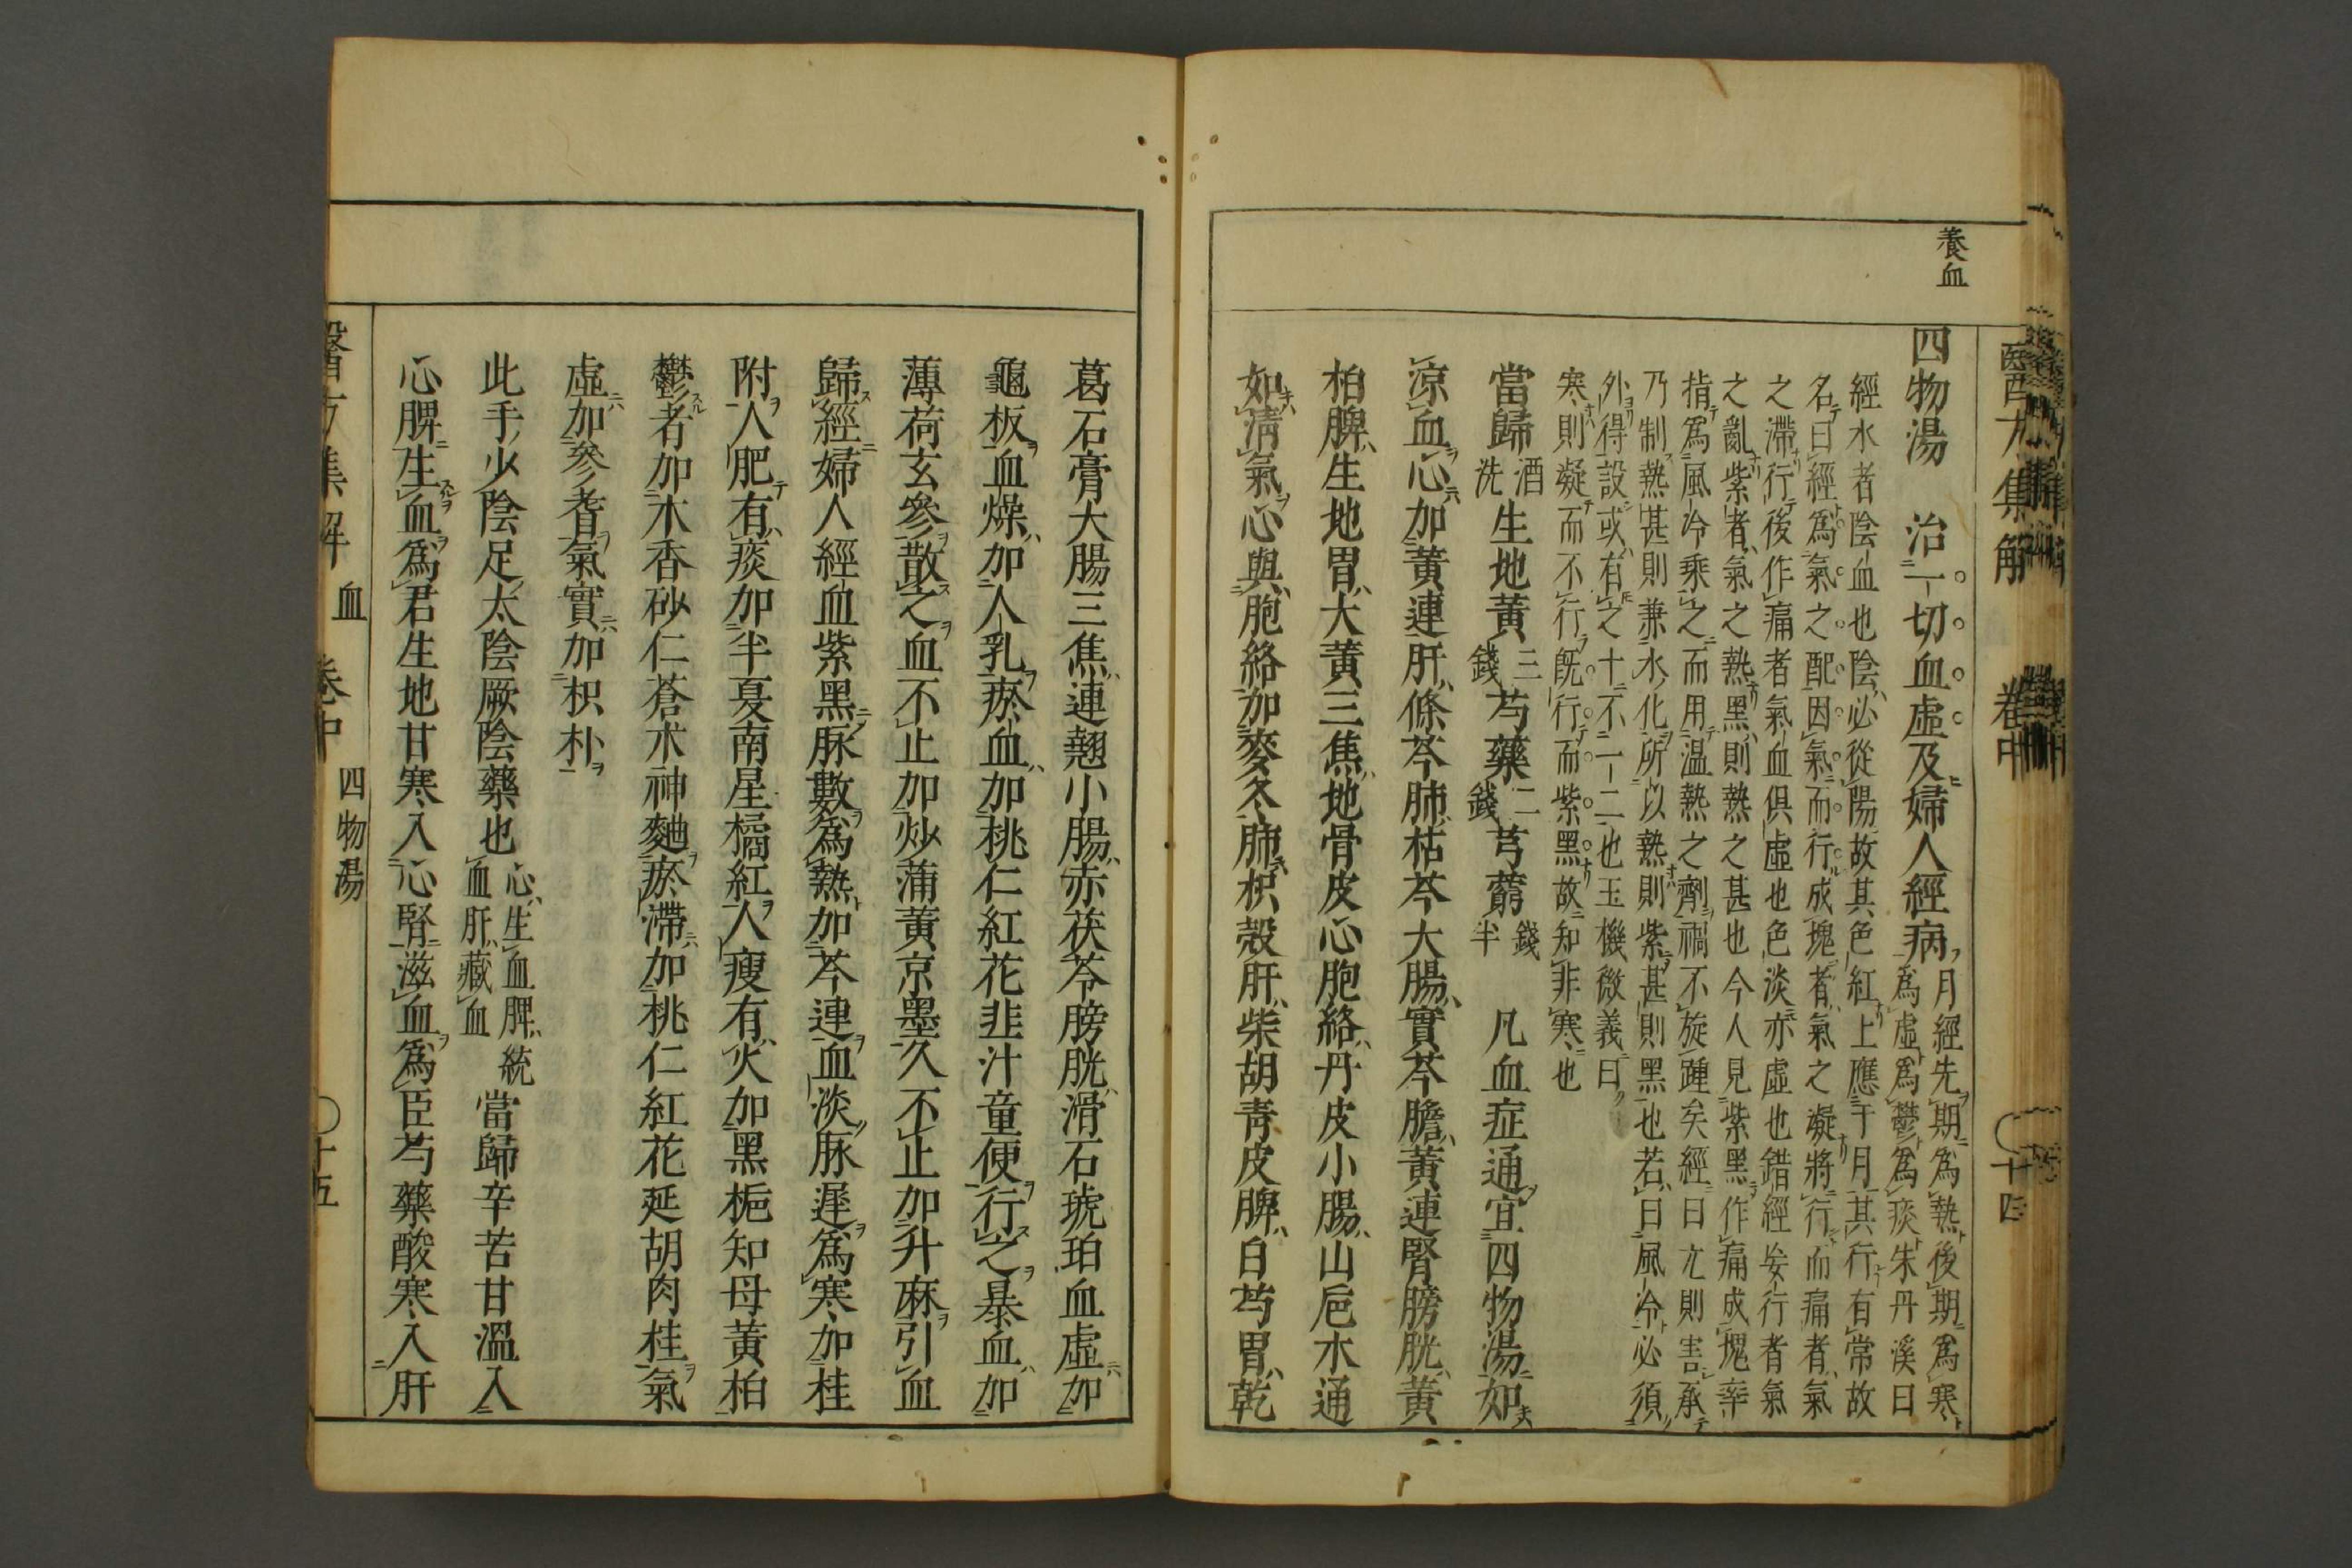 養血
四物湯 治一切血虛及婦人經病月經先期爲熱後期爲寒
爲虛爲鬱爲痰朱丹溪曰
經水者陰血也陰必從陽故其色紅上應于月其行有常故
名曰經爲氣之配因氣而行成塊者氣之凝將行而痛者氣
之滯行後作痛者氣血俱虛也色淡亦虛也錯經妄行者氣
之亂紫者氣之熱黑則熱之甚也今人見紫黑作痛成塊率
指爲風冷乘之而用温熱之劑禍不旋踵矣經曰亢則害承
乃制熱甚則兼水化所以熱則紫甚則黑也若曰風冷必須
外得設或有之十不一二也玉機微義曰
寒則凝而不行旣行而紫黑故知非寒也
當歸酒洗生地黄三錢芍藥二錢芎藭錢半 凡血症通宜四物湯如
凉血心加黄連肝條芩肺枯芩大腸實芩膽黄連腎膀胱黄
柏脾生地胃大黄三焦地骨皮心胞絡丹皮小腸山巵木通
如淸氣心與胞絡加麥冬肺枳殼肝柴胡靑皮脾白芍胃乾
醫方集解 卷中 〇十四
葛石膏大腸三焦連翹小腸赤茯苓膀胱滑石琥珀血虛加
龜板血燥加人乳瘀血加桃仁紅花韭汁童便行之暴血加
薄荷玄參散之血不止加炒蒲黄京墨久不止加升麻引血
歸經婦人經血紫黑脉數爲熱加芩連血淡脉遲爲寒加桂
附人肥有痰加半夏南星橘紅人瘦有火加黑梔知母黄柏
鬱者加木香砂仁蒼朮神麯瘀滯加桃仁紅花延胡肉桂氣
虛加參耆氣實加枳朴
此手少陰足太陰厥陰藥也心生血脾統血肝藏血當歸辛苦甘溫入
心脾生血爲君生地甘寒入心腎滋血爲臣芍藥酸寒入肝
醫方集解 血 卷中 四物湯 〇十五